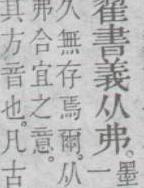 翟書義从弗。墨
一
久無存焉爾。从
弗合宜之意。
其方音也。凡古